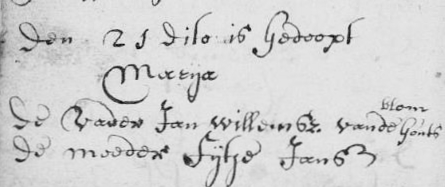 den 21 dito is gedoopt
Marija
blom
de Vader Jan Willemsz. vande houts
de moeder Fijtje Jans